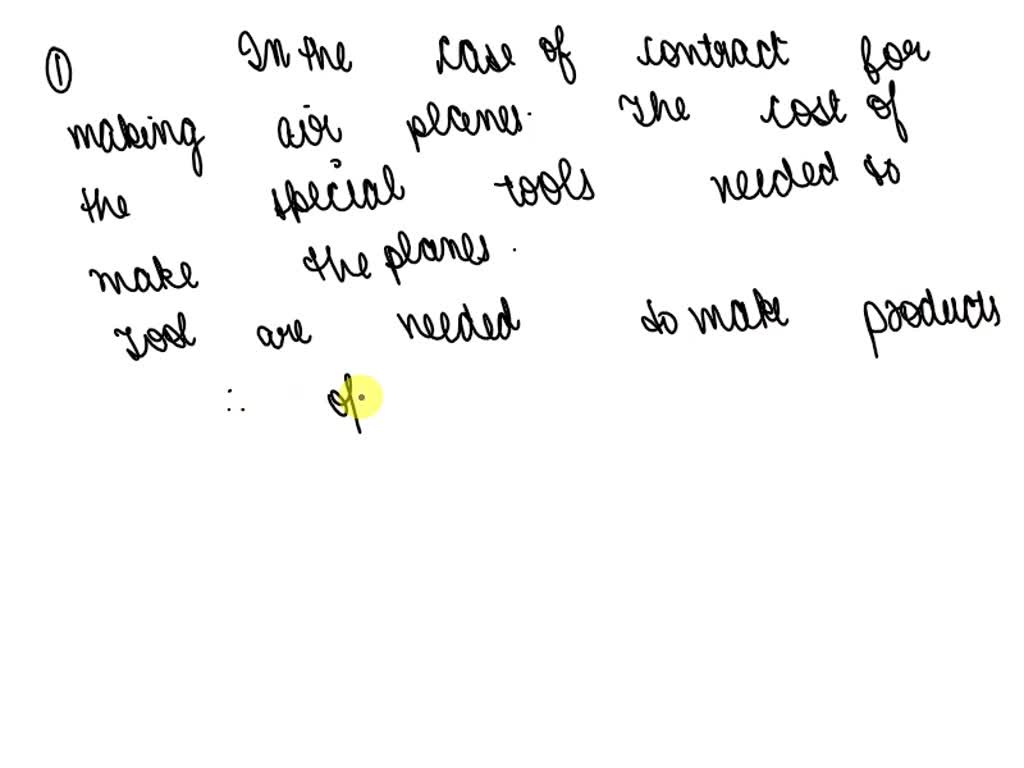 ① In the case of contract for
making air planes. The cost of
the special tools needed to
make the planes.
Tool are needed to make products
∴ of